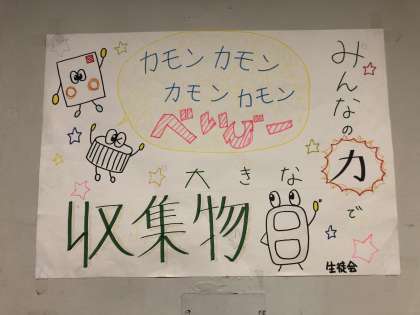 カモンカモン
カモンカモン
べいびー
みんなの力で
大きな
収集物
生徒会